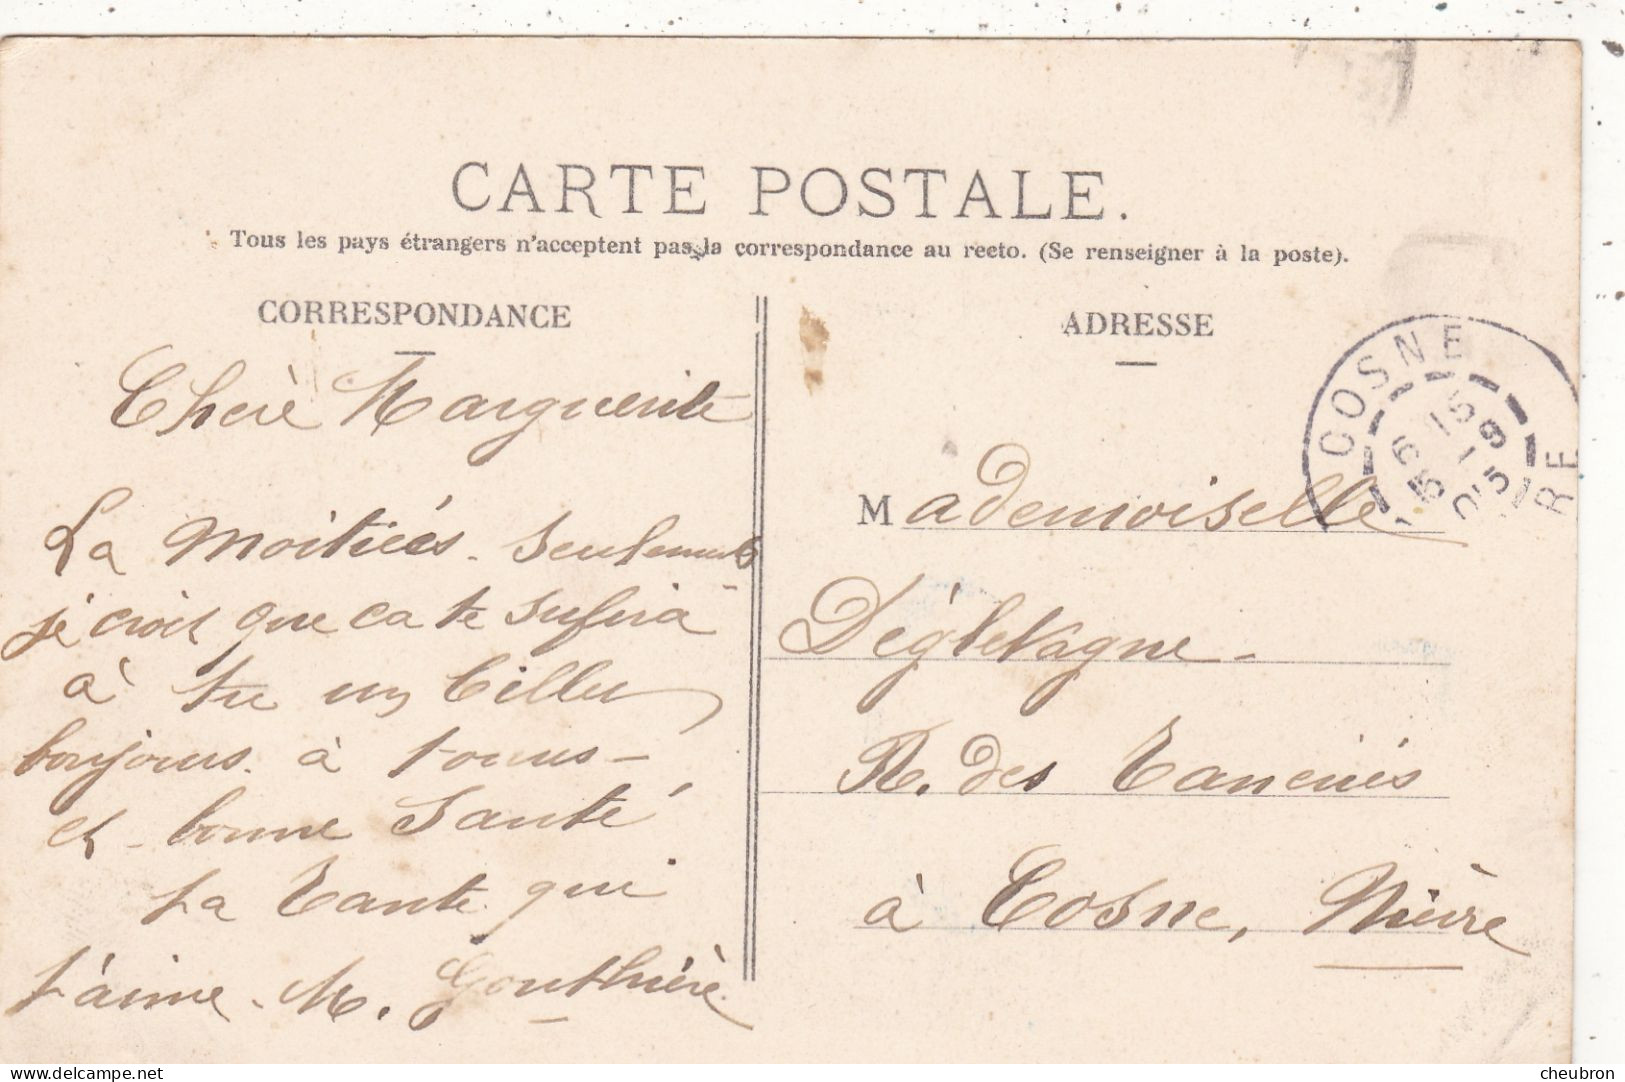 CARTE POSTALE.
Tous les pays étrangers n'acceptent pas la correspondance au recto. (Se renseigner à la poste).
CORRESPONDANCE
Chère Marguerite
La Moitiés. Seulement
je crois que ca te sufira
à tu un billet
bonjours. à tous -
et bonne Santé
ta tante qui
t'aime. M. Gouthière.
ADRESSE
Mademoiselle
R. des Taneries
à Cosne, Nièvre
COSNE
cheubron
www.delcampe.net